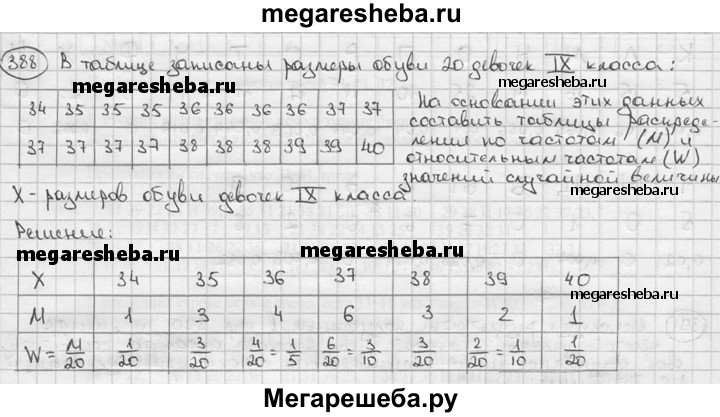 megaresheba.ru
388 В таблице записаны размеры обуви 20 девочек IX класса:
megaresheba.ru megaresheba.ru
34 35 35 35 36 36 36 36 37 37
37 37 37 37 38 38 38 39 39 40
На основании этих данных
составить таблицы распреде-
ления по частотам (M) и
относительным частотам (W)
значений случайной величины
X - размеров обуви девочек IX класса.
megaresheba.ru
Решение:
megaresheba.ru megaresheba.ru
X 34 35 36 37 38 39 40
megaresheba.ru
M 1 3 4 6 3 2 1
W = M/20 1/20 3/20 4/20 = 1/5 6/20 = 3/10 3/20 2/20 = 1/10 1/20
Мегарешеба.ру